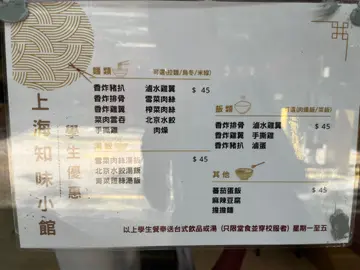 上海知味小館
學生優惠
麵類
可選(拉麵/烏冬/米線)
香炸豬扒 滷水雞翼 $ 45
香炸排骨 雪菜肉絲
香炸雞翼 榨菜肉絲
菜肉雲吞 北京水餃
手撕雞 肉燥
雪菜肉絲湯麵 $ 45
北京水餃湯麵
飯類
香炸排骨 滷水雞翼 $ 45
香炸雞翼 手撕雞
香炸豬扒 滷蛋
其他
$ 45
蕃茄蛋飯
麻辣豆腐
擔擔麵
以上學生餐奉送台式飲品或湯 (只限堂食並穿校服者) 星期一至五